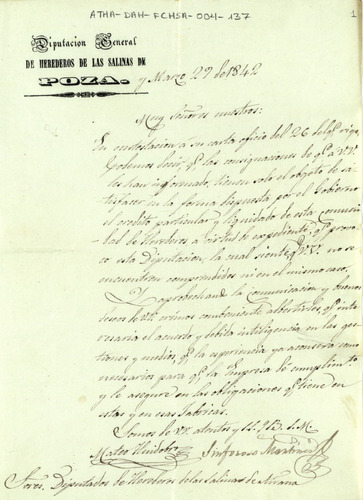 ATHA-DAH-FCHSA-004-137
1
Diputacion General
DE HEREDEROS DE LAS SALINAS DE
POZA.
y Marzo 29 de 1842
Muy Señores nuestros:
En contestacion a su carta oficio del 26 del q.e rige,
podemos decir q.e las consignaciones de q.e a VV.
les han informado, tienen solo el objeto de sa-
tisfacer en la forma dispuesta por el Gobierno
el credito particular y liquidado de esta comuni-
dad de Herederos a virtud de expediente, q.e promo-
vio esta Diputacion, la cual siente q.e VV. no se
encuentren comprendidos ni en el mismo caso.
Y aprobechando la comunicacion y buenos
deseos de VV. creemos combeniente albertirles, q.e inte-
resaria el acuerdo y debida inteligencia en las ges-
tiones y medios, q.e la esperiencia ya aconseja como
necesarios para q.e la Empresa de cumplim.to
y le asegure en las obligaciones q.e tiene en
estas y en esas fabricas.
Somos de VV. atentos y SS. Q. B. S. M.
Mateo Huidobro
Sinforoso Martinez
Sores. Diputados de Herederos de las Salinas de Añana